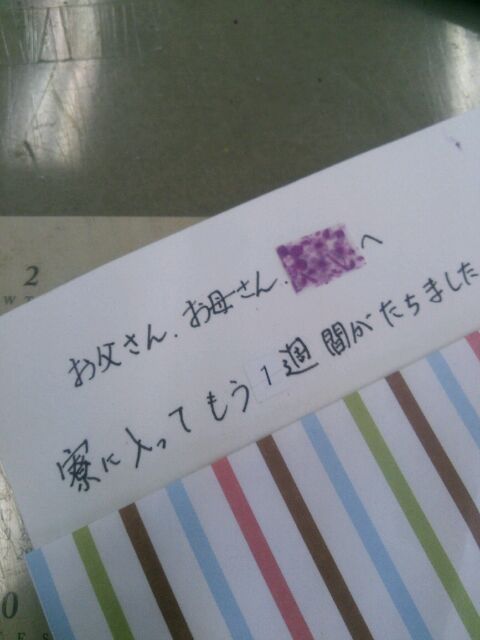 お父さん、お母さん、へ
寮に入ってもう1週間がたちました
2
W T
0
E S